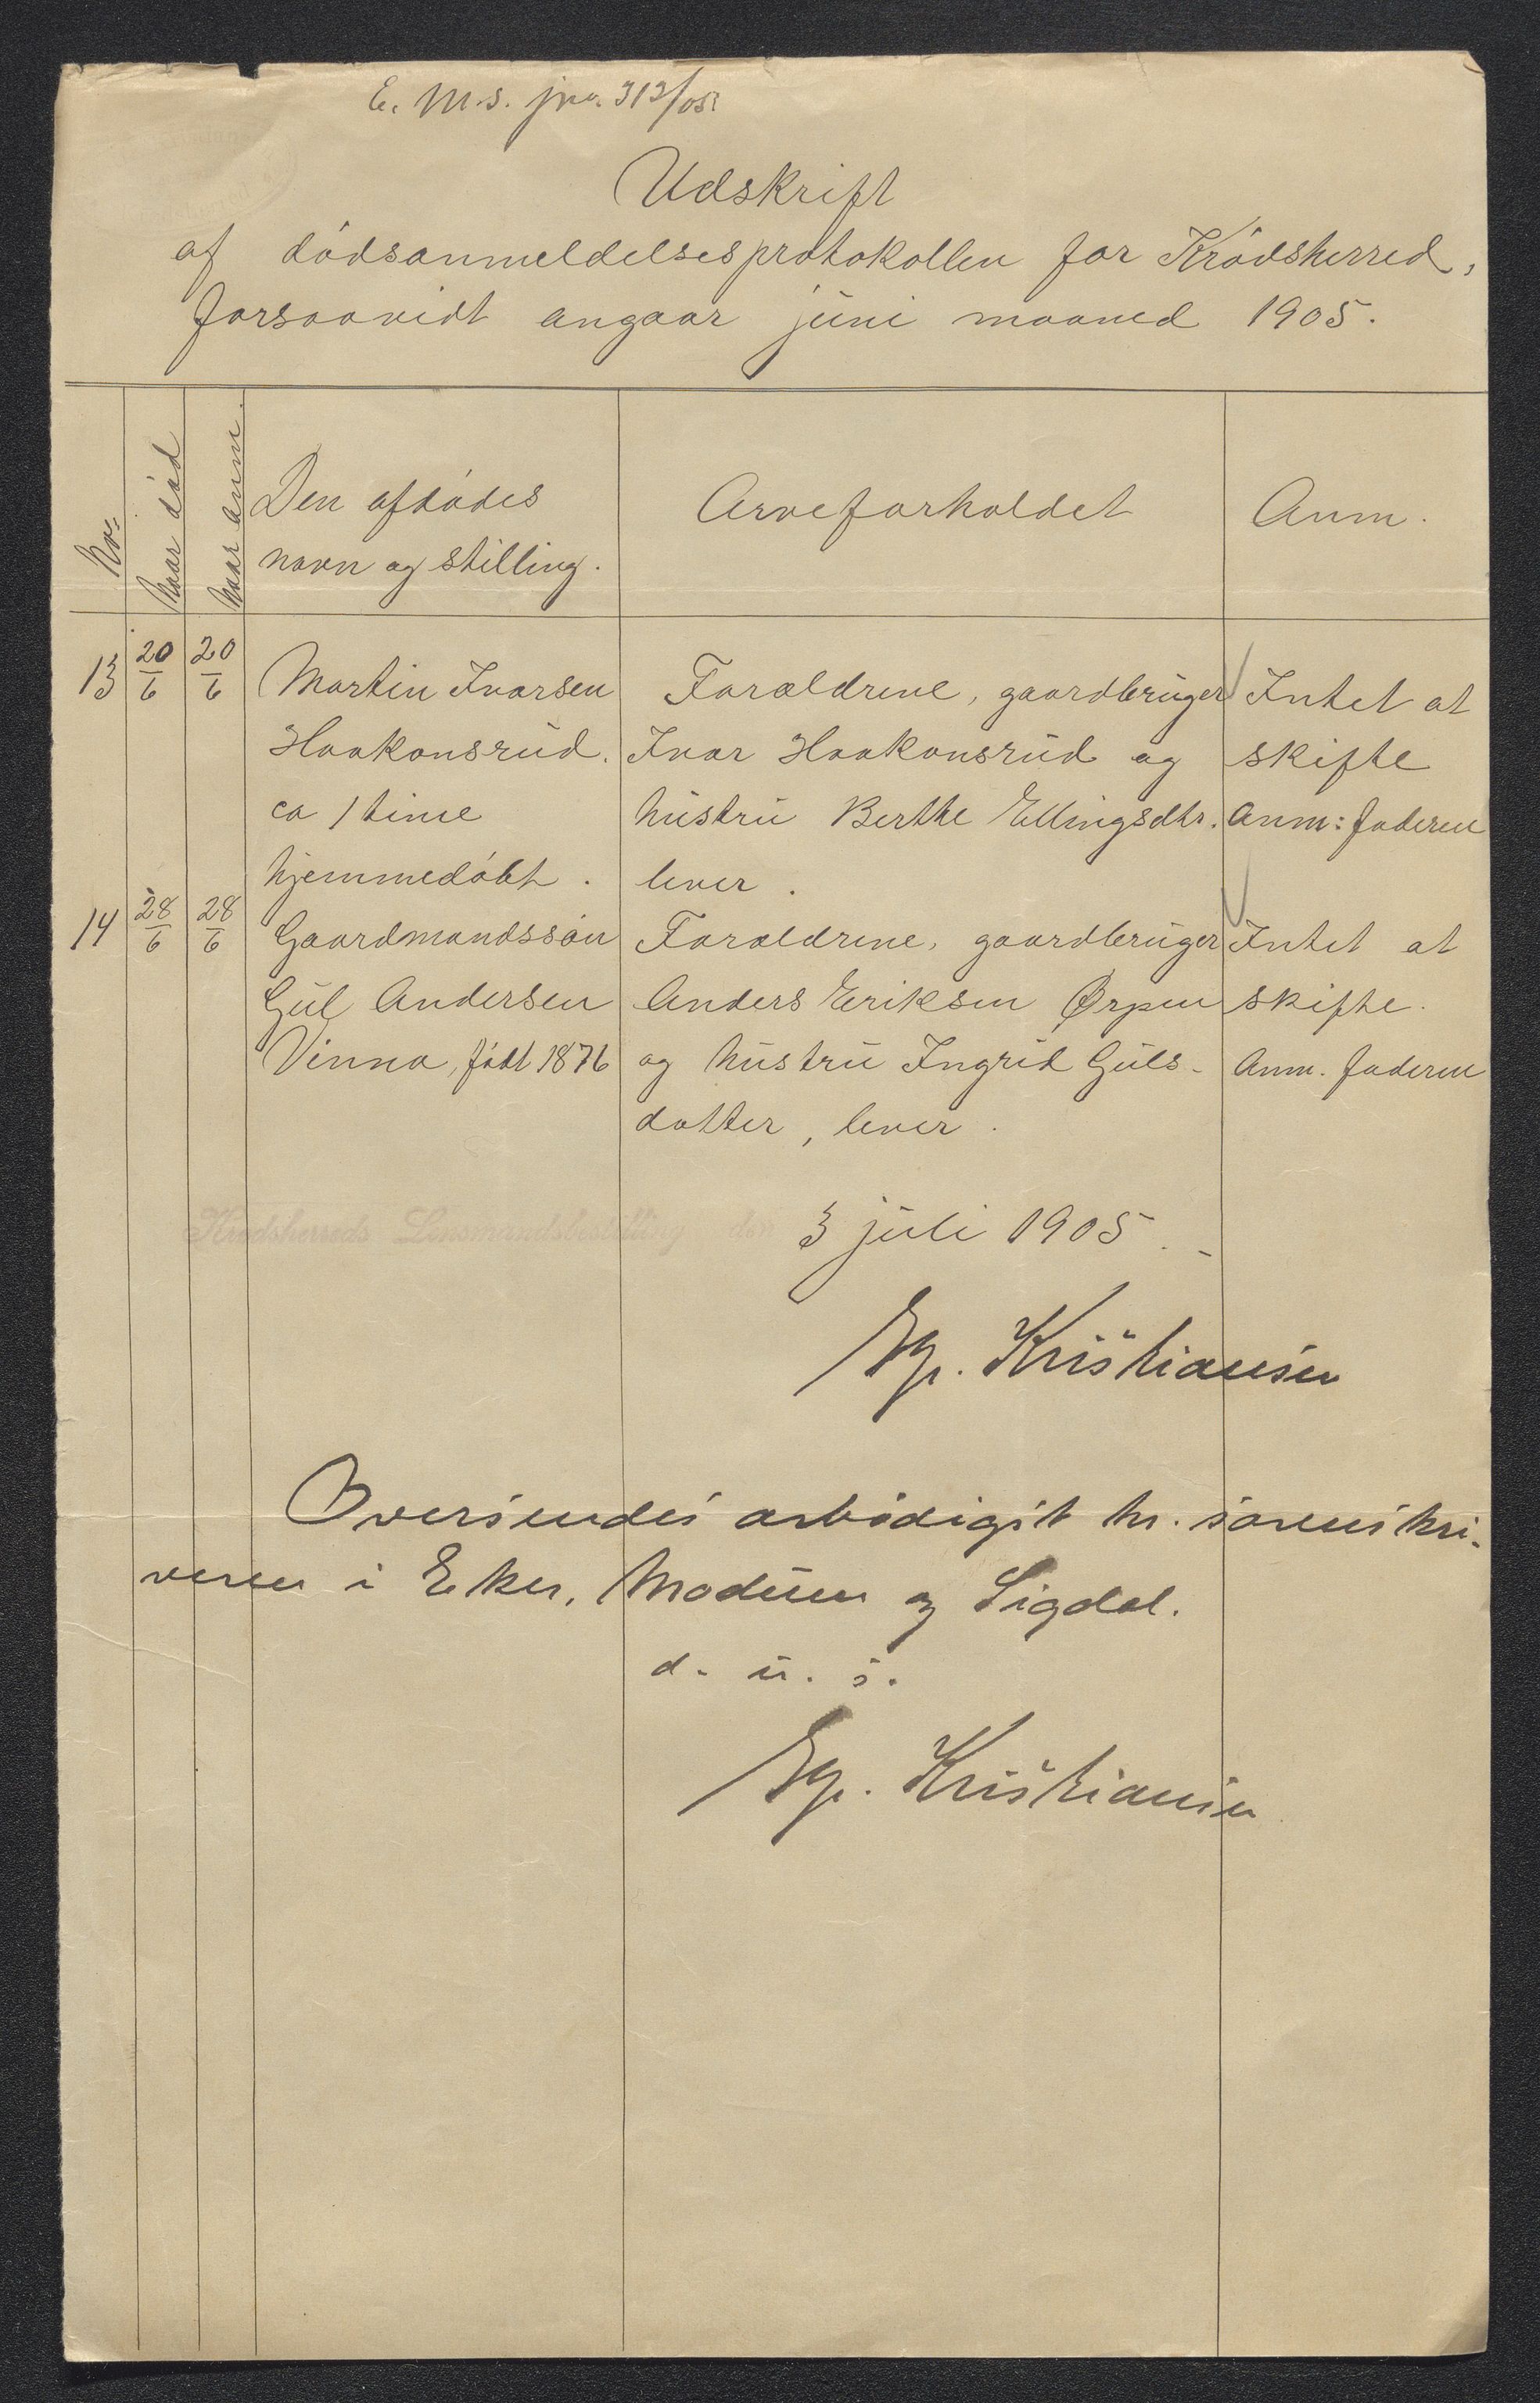 E. M.S. jno. 313/05.
Udskrift
af dödsanmeldelsesprotokollen for Krödsherred,
forsaavidt angaar juni maaned 1905.
No. Naar död Naar anm. Den afdödes navn og stilling. Arveforholdet Anm.
13 20/6 20/6 Martin Ivarsen Forældrene, gaardbruger Intet at
Haakonsrud. Ivar Haakonsrud og skifte
ca 1 time hustru Berthe Ellingsdtr. Anm: faderen
hjemmedöbt. lever.
14 28/6 28/6 Gaardmandssön Forældrene, gaardbruger Intet at
Gul Andersen Anders Eriksen Ørpen skifte.
Vinna, födt 1876 og hustru Ingrid Guls- Anm. faderen
datter, lever.
Krødsherreds Lensmandsbestilling den 3 juli 1905.-
Kristiansen
Oversendes ærbödigst hr. sorenskri-
veren i Eker, Modum og Sigdal.
d. u. s.
Kristiansen